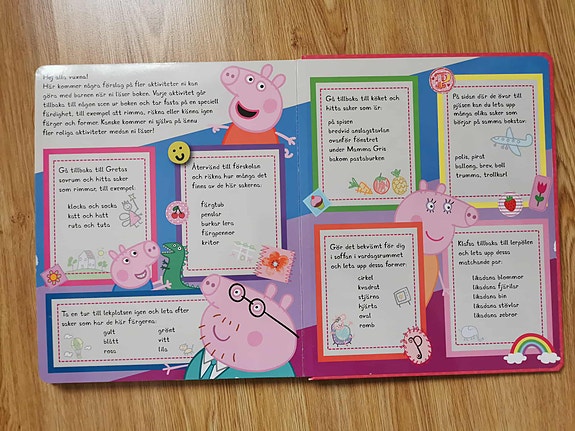 Hej alla vuxna!
Här kommer några förslag på fler aktiviteter ni kan
göra med barnen när ni läser boken. Varje aktivitet går
tillbaka till någon scen ur boken och tar fasta på en speciell
färdighet, till exempel att rimma, räkna eller känna igen
färger och former. Kanske kommer ni själva på ännu
fler roliga aktiviteter medan ni läser!
Gå tillbaka till Gretas
sovrum och hitta saker
som rimmar, till exempel:
klocka och socka
katt och hatt
ruta och tuta
Återvänd till förskolan
och räkna hur många det
finns av de här sakerna:
färgtub
penslar
burkar lera
färgpennor
kritor
Ta en tur till lekplatsen igen och leta efter
saker som har de här färgerna:
gult
grönt
blått
vitt
rosa
lila
Gå tillbaka till köket och
hitta saker som är:
på spisen
bredvid anslagstavlan
ovanför fönstret
under Mamma Gris
bakom pastaburken
På sidan där de övar till
pjäsen kan du leta upp
många olika saker som
börjar på samma bokstav:
polis, pirat
ballong, brev, boll
trumma, trollkarl
Gör det bekvämt för dig
i soffan i vardagsrummet
och leta upp dessa former:
cirkel
kvadrat
stjärna
hjärta
oval
romb
Klafsa tillbaka till lerpölen
och leta upp dessa
matchande par:
likadana blommor
likadana fjärilar
likadana bin
likadana stövlar
likadana zebror
P